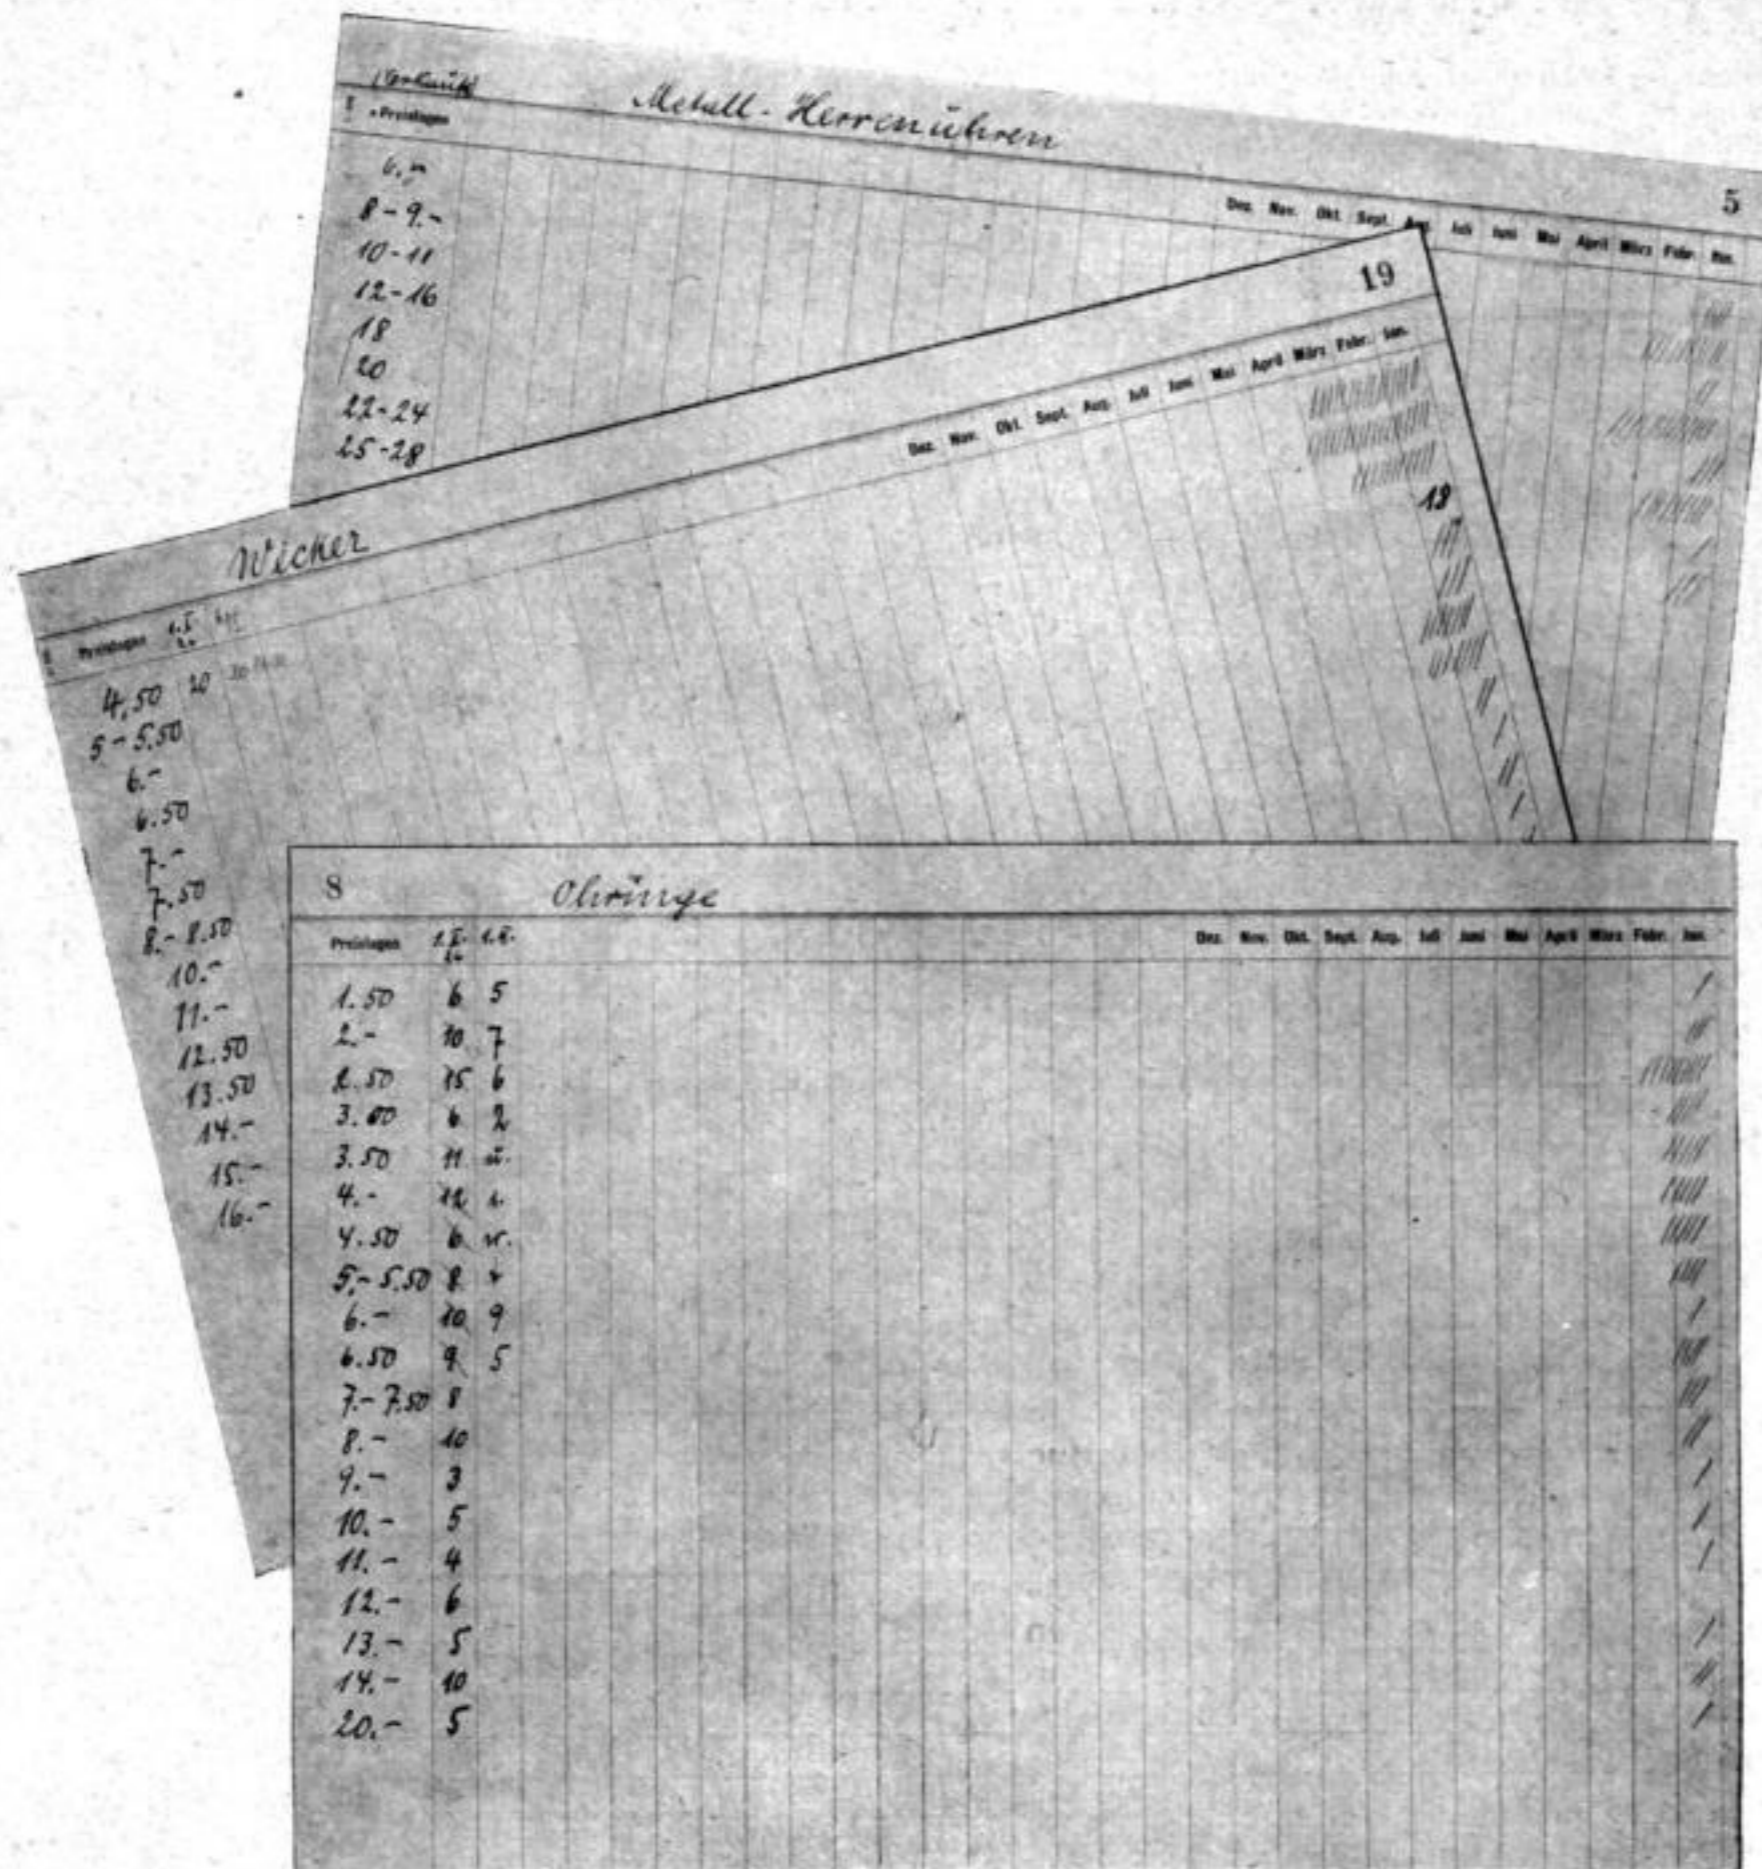 Metall-Herrenuhren
5
Preislagen
Dez. Nov. Okt. Sept. Juli Juni Mai April März Febr. Jan.
6.-
8-9.-
10-11
12-16
18
20
22-24
25-28
19
Wecker
Preislagen
Dez. Nov. Okt. Sept. Aug. Juli Juni Mai April März Febr. Jan.
4,50 20
5-5.50
6.-
6.50 18
7.-
7.50
8.-8.50
10.-
11.-
12.50
13.50
14.-
15.-
16.-
8 Ohringe
Preislagen
Dez. Nov. Okt. Sept. Aug. Juli Juni Mai April März Febr. Jan.
1.50 6 5
2.- 10 7
2.50 15 6
3.00 6 2
3.50 11 u.
4.- 12
4.50 6
5.-5.50 8
6.- 10 9
6.50 9 5
7.-7.50 8
8.- 10
9.- 3
10.- 5
11.- 4
12.- 6
13.- 5
14.- 10
20.- 5